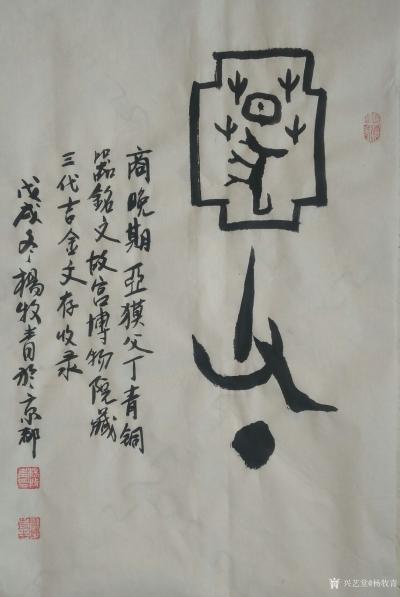 商晚期亞獏父丁青銅
器銘文故宫博物院藏
三代吉金文存收录
戊戌冬楊牧青於京都
兴艺堂@杨牧青